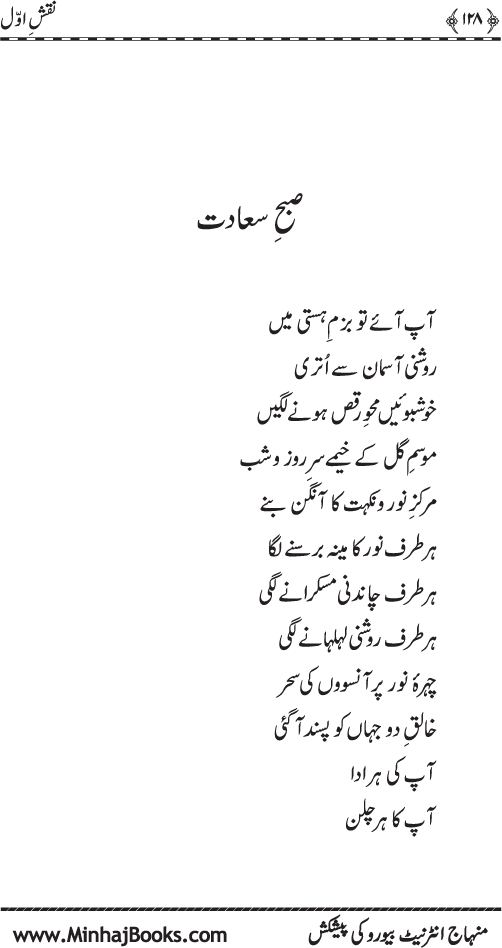 ﴿۱۲۸﴾ نقشِ اوّل
صبحِ سعادت
آپ آئے تو بزمِ ہستی میں
روشنی آسمان سے اُتری
خوشبوئیں محوِ رقص ہونے لگیں
موسمِ گل کے خیمے سرِ روز و شب
مرکزِ نور و نکہت کا آنگن بنے
ہر طرف نور کا مینہ برسنے لگا
ہر طرف چاندنی مسکرانے لگی
ہر طرف روشنی لہلہانے لگی
چہرۂ نور پر آنسووں کی سحر
خالقِ دو جہاں کو پسند آ گئی
آپ کی ہر ادا
آپ کا ہر چلن
منہاج انٹرنیٹ بیورو کی پیشکش www.MinhajBooks.com